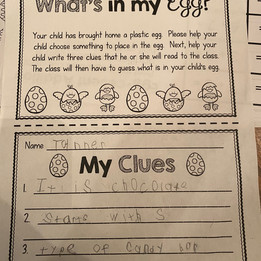 What's in my Egg?
Your child has brought home a plastic egg. Please help your
child choose something to place in the egg. Next, help your
child write three clues that he or she will read to the class.
The class will then have to guess what is in your child's egg.
Name Tanner
My Clues
1. It is chocolate
2. Starts with S
3. type of candy bar